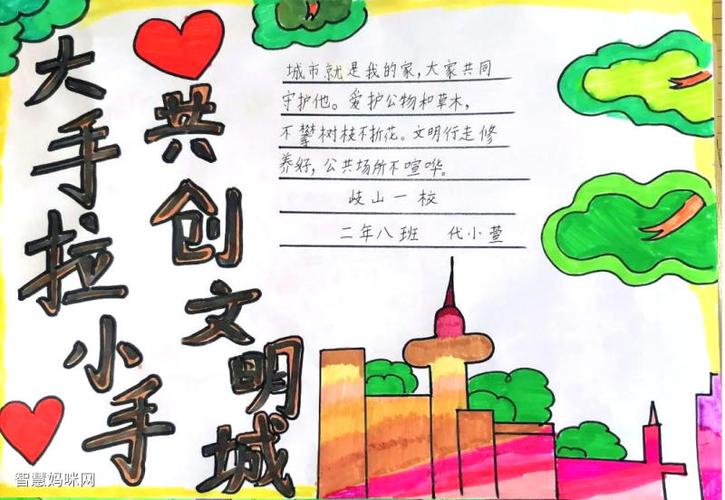 大手拉小手
共创文明城
城市就是我的家，大家共同
守护他。爱护公物和草木，
不攀树枝不折花。文明行走修
养好，公共场所不喧哗。
岐山一校
二年八班 代小萱
智慧妈咪网